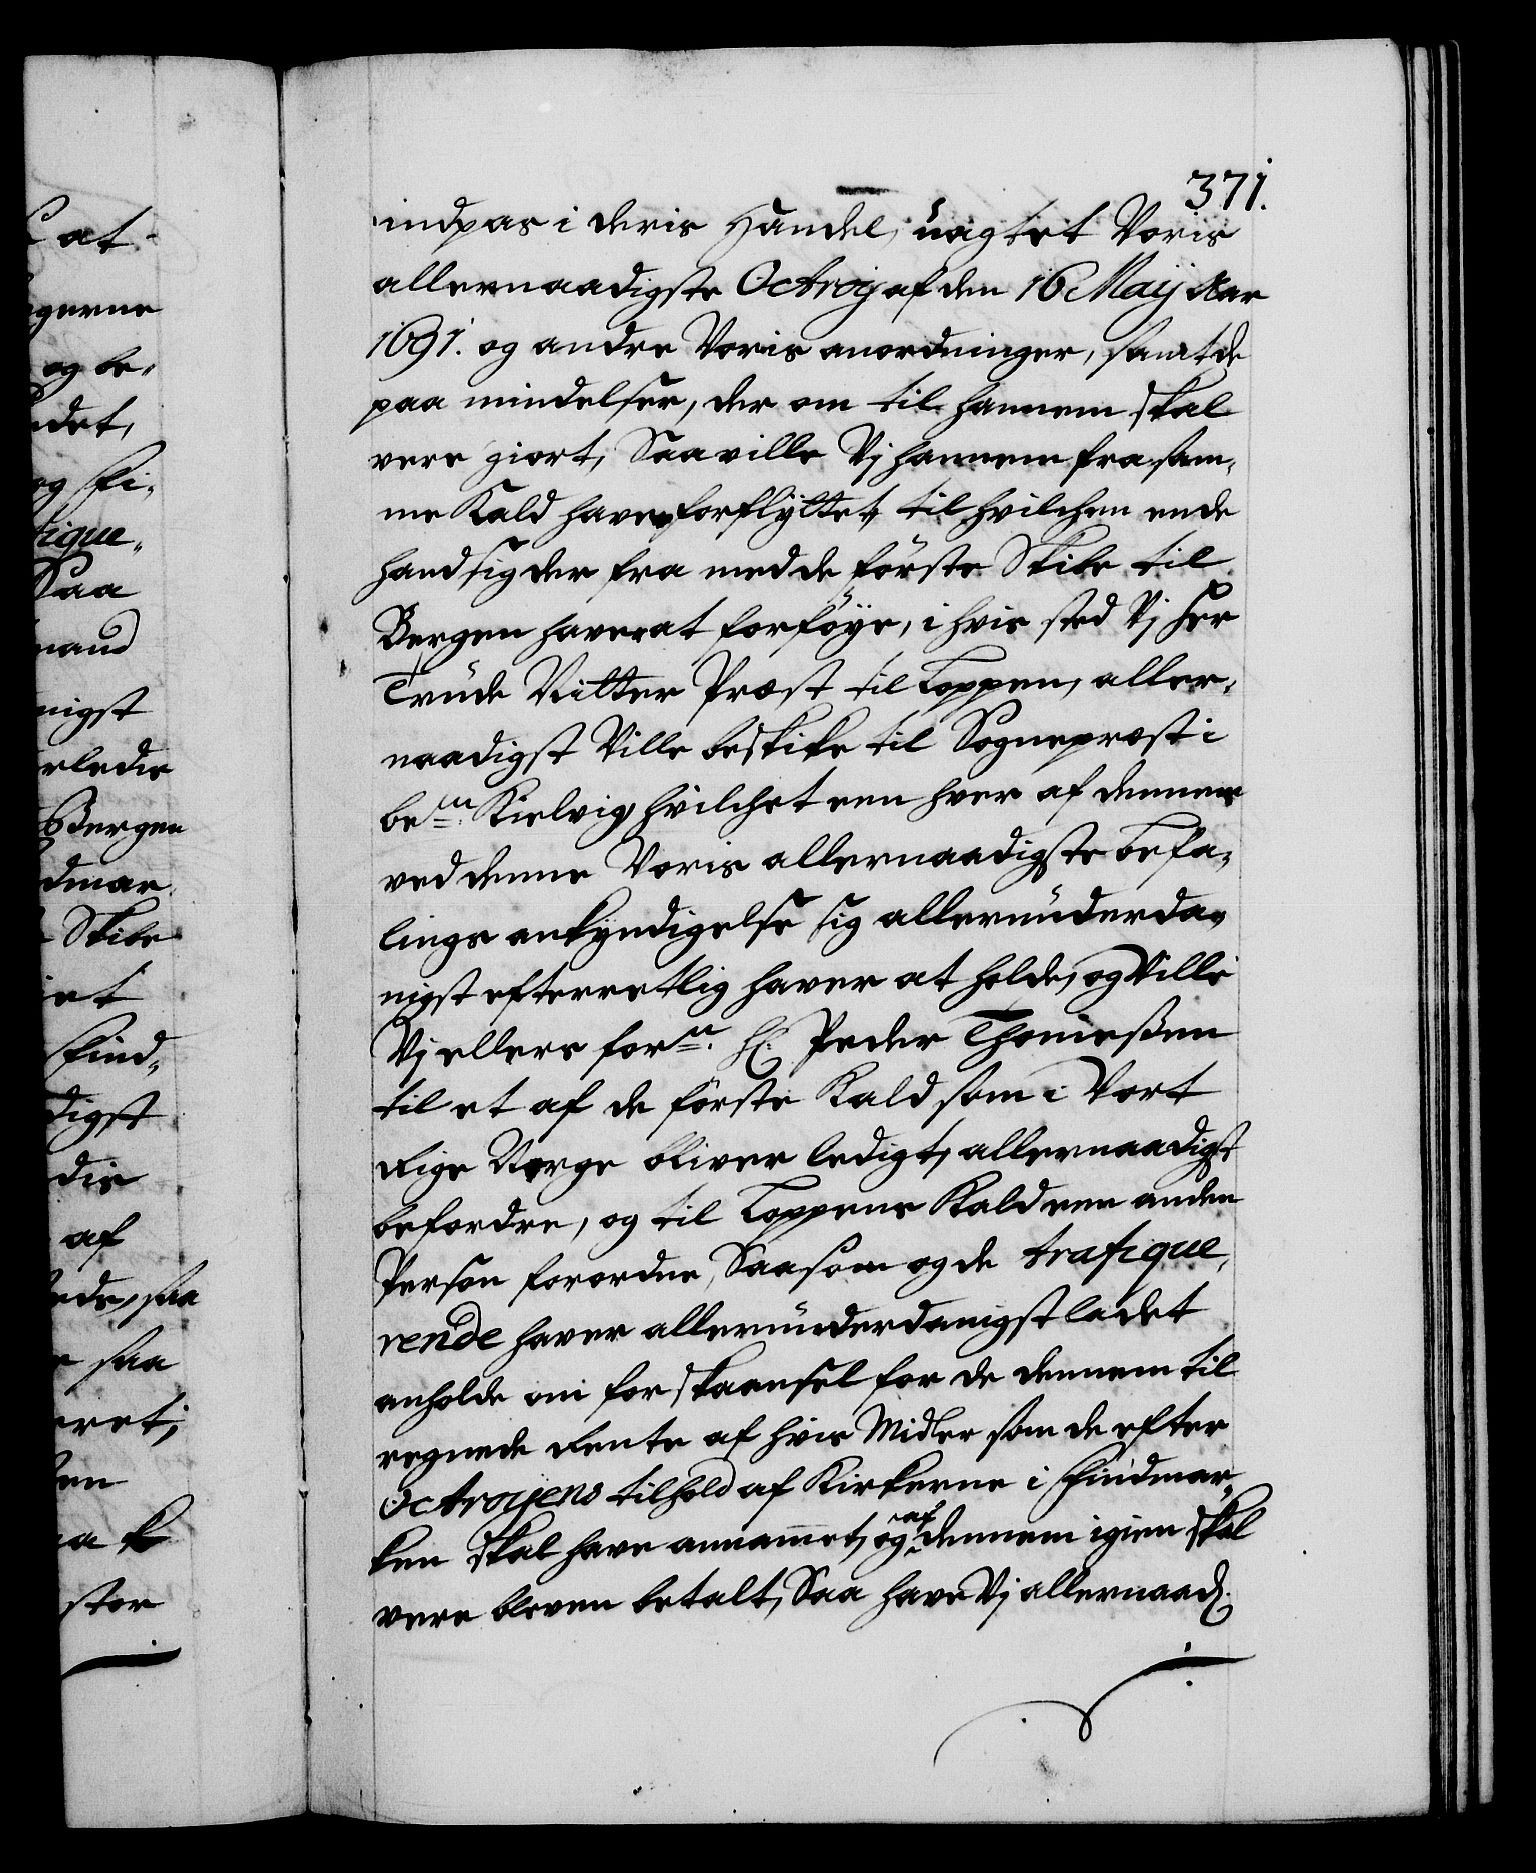 371.
indpas i deris Handel, uagtet Voris
allernaadigste Octroy af den 16 Maij Aar
1691. og andre Voris anordninger, samt de
paa mindelser, der om til hannem skal
vere giort, Saa ville Vj hannem fra sam„
me Kald have forflyttet, til hvilchen ende
hand sig der fra med de förste Skibe til
Bergen haver at forföye, i hvis sted Vj Her
Trude Nitter Præst til Loppen, aller„
naadigst Ville beskike til Sognepræst i
bemte. Kielvig, hvilchet een hver af dennem
ved denne Voris allernaadigste befa„
lings ankyndigelse sig allerunderda„
nigst efterretlig haver at holde, og Ville
Vj ellers formte. Hr. Peder Thomeßen
til et af de förste Kald som i Vort
Rige Norge bliver ledigt, allernaadigst
befordre, og til Loppens Kald een anden
Person forordne, Saasom og de trafique„
rende haver allerunderdanigst ladet
anholde om forskaansel for de dennem til
regnede Rente af hvis Midler som de efter
Octroyens tilhold af Kirkerne i Findmar„
ken skal have annammet, og af dennem igien skal
vere bleven betalt, Saa have Vj allernaad.
at
gerne
og be„
det,
og Fi„
fique„
Saa
mand
nigst
erledis
Bergen
dmar
Skibe
et
Find„
digst
dis
af
ede, saa
saa
eret;
en
stor